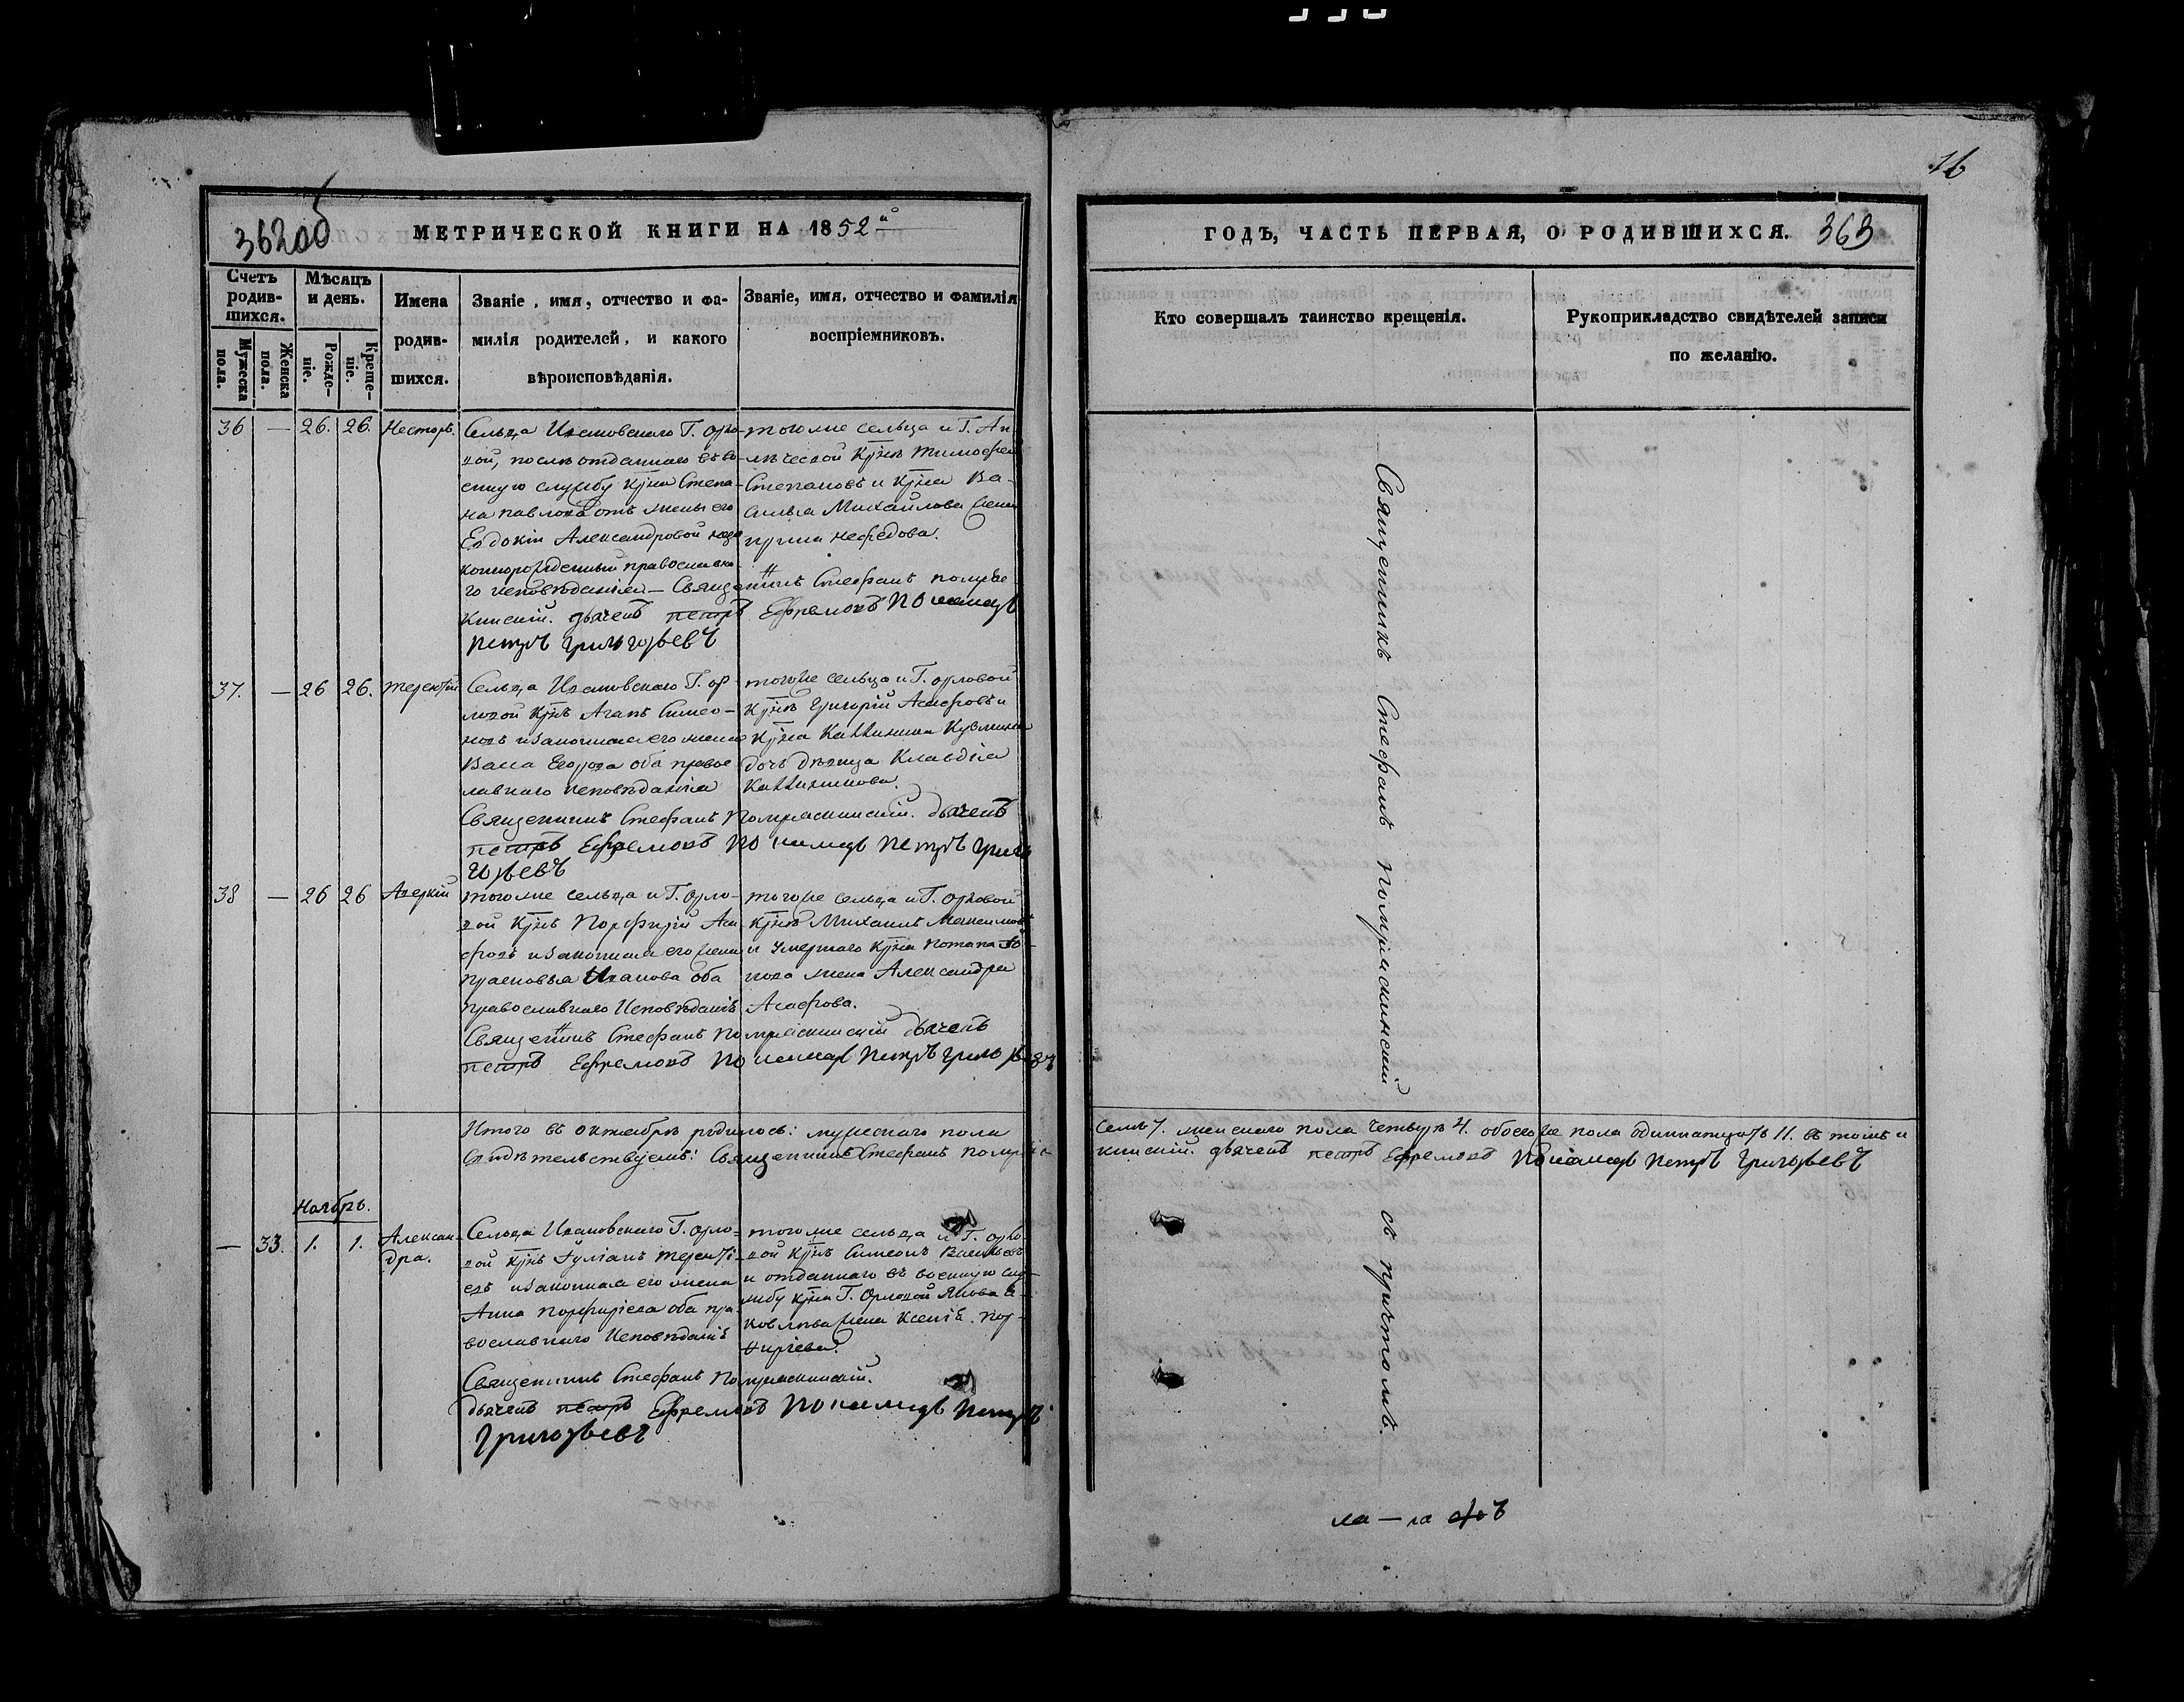 16
362об
МЕТРИЧЕСКОЙ КНИГИ НА 1852й
ГОДЪ, ЧАСТЬ ПЕРВАЯ, О РОДИВШИХСЯ. 363
Счетъ родив-шихся.
Мужеска пола.
Женска пола.
Мѣсяцъ и день.
Рожде-ніе.
Креще-ніе.
Имена
родив-
шихся.
Званіе, имя, отчество и фа-
милія родителей, и какого
вѣроисповѣданія.
Званіе, имя, отчество и фамилія
воспріемниковъ.
Кто совершалъ таинство крещенія.
Рукоприкладство свидѣтелей записи
по желанію.
36 — 26. 26. Несторъ.
Сельца Ивановскаго Г. Орло-
вой, послѣ отданнаго въ во-
енную службу крна Степа-
на Павлова отъ жены его
Евдокіи Александровой
православна-
го исповѣданія — Священникъ Стефанъ
дьячекъ петръ Ефремовъ Пономарь
Петръ Григорьевъ
тогоже сельца и Г.
крнъ Тимофей
Степановъ и крна Ва-
силья Михайлова жена
Нефедова.
37. — 26 26. Терентій
Сельца Ивановскаго Г. Ор-
ловой крнъ Агапъ Симео-
новъ и законная его жена
Васса Егорова оба правос
лавнаго исповѣданія
Священникъ Стефанъ дьячекъ
петръ Ефремовъ Пономарь Петръ Григо
рьевъ
тогоже сельца и Г. Орловой
крнъ Григорій Асафовъ и
крна Каллиника Кузмина
дочь дѣвица Клавдіа
Каллиникова.
38 — 26 26 Аверкій
тогоже сельца и Г. Орло-
вой крнъ Порфирій Аса-
фовъ и законная его жена
Прасковья Иванова оба
православнаго Исповѣданіѣ
Священникъ Стефанъ дьячекъ
петръ Ефремовъ Пономарь Петръ Григорьевъ
тогоже сельца и Г. Орловой
крнъ Михаилъ Максимовъ
и умершаго крна Потапа
жена Александра
Асафова.
Итого въ октябрѣ родилось: мужескаго пола
семь 7. женскаго пола четыре 4. обоего же пола одиннатцать 11. въ томъ и
свидѣтельствуемъ: Священникъ Стефанъ
дьячекъ петръ Ефремовъ Пономарь Петръ Григорьевъ
Ноябрь.
— 33. 1. 1. Алексан-
дра.
Сельца Ивановскаго Г. Орло-
вой крнъ Іуліанъ Теренті-
евъ и законная его жена
Анна Порфиріева оба пра-
вославнаго Исповѣданіѣ
Священникъ Стефанъ
дьячекъ петръ Ефремовъ Пономарь Петръ
Григорьевъ
тогоже сельца и Г. Орло-
вой крнъ Симеонъ Васильевъ
и отданнаго въ военную слу-
жбу крна Г. Орловой Якова Я-
ковлева жена Ксеніѣ Пор-
фиріева.
Священникъ Стефанъ
съ причтомъ.